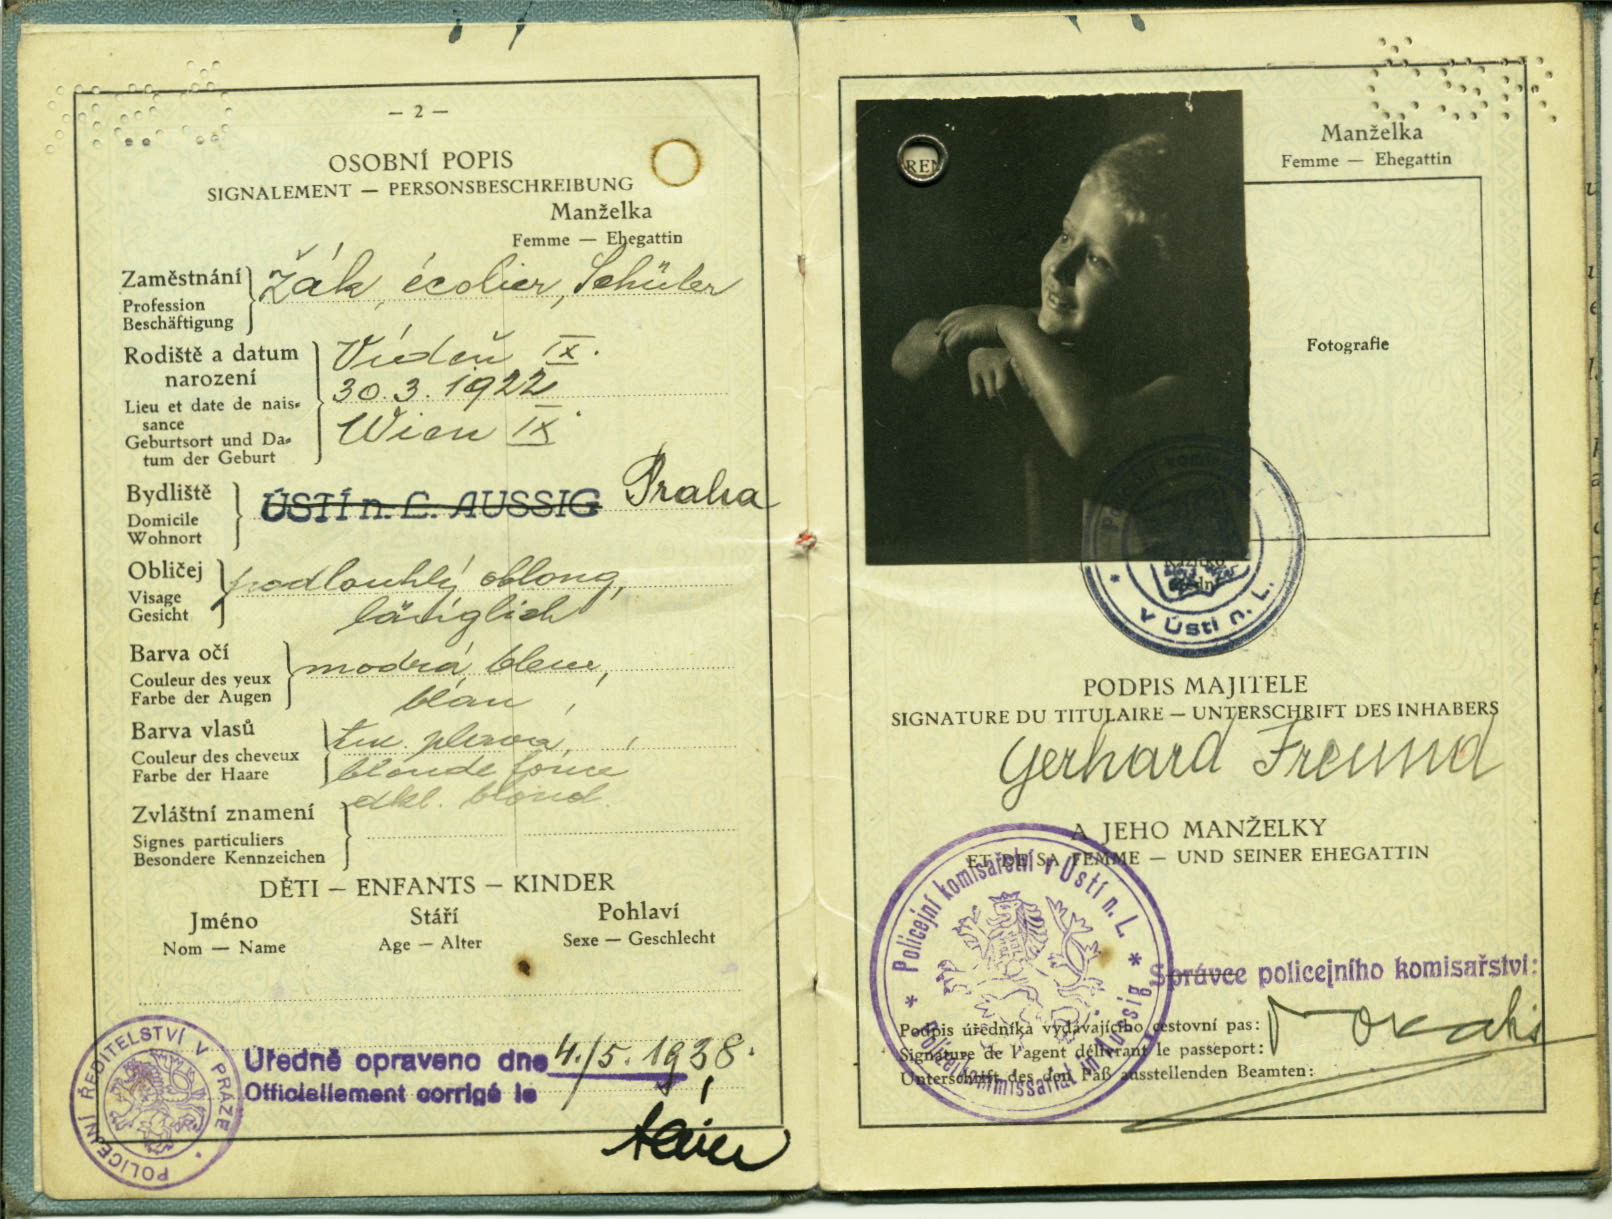 – 2 –
OSOBNÍ POPIS
SIGNALEMENT — PERSONSBESCHREIBUNG
Manželka
Femme — Ehegattin
Zaměstnání
Profession
Beschäftigung
žák, écolier, Schüler
Rodiště a datum
narození
Lieu et date de nais=
sance
Geburtsort und Da=
tum der Geburt
Vídeň IX.
30.3.1922
Wien IX.
Bydliště
Domicile
Wohnort
ÚSTÍ n. L. AUSSIG Praha
Obličej
Visage
Gesicht
podlouhlý oblong,
länglich
Barva očí
Couleur des yeux
Farbe der Augen
modrá, bleue,
blau
Barva vlasů
Couleur des cheveux
Farbe der Haare
tm. plavá,
blonde
dkl. blond.
Zvláštní znamení
Signes particuliers
Besondere Kennzeichen
DĚTI — ENFANTS — KINDER
Jméno Stáří Pohlaví
Nom — Name Age — Alter Sexe — Geschlecht
Úředně opraveno dne 4./5. 1938.
Officiellement corrigé le
POLICEJNÍ ŘEDITELSTVÍ V PRAZE
Manželka
Femme — Ehegattin
REN
Fotografie
v Ústí n. L.
PODPIS MAJITELE
SIGNATURE DU TITULAIRE — UNTERSCHRIFT DES INHABERS
Gerhard Freund
A JEHO MANŽELKY
ET DE SA FEMME — UND SEINER EHEGATTIN
Policejní komisařství v Ústí n. L.
Polizeikommissariat in Aussig
Správce policejního komisařství:
Podpis úředníka vydávajícího cestovní pas:
Signature de l'agent délivrant le passeport:
Unterschrift des den Paß ausstellenden Beamten: